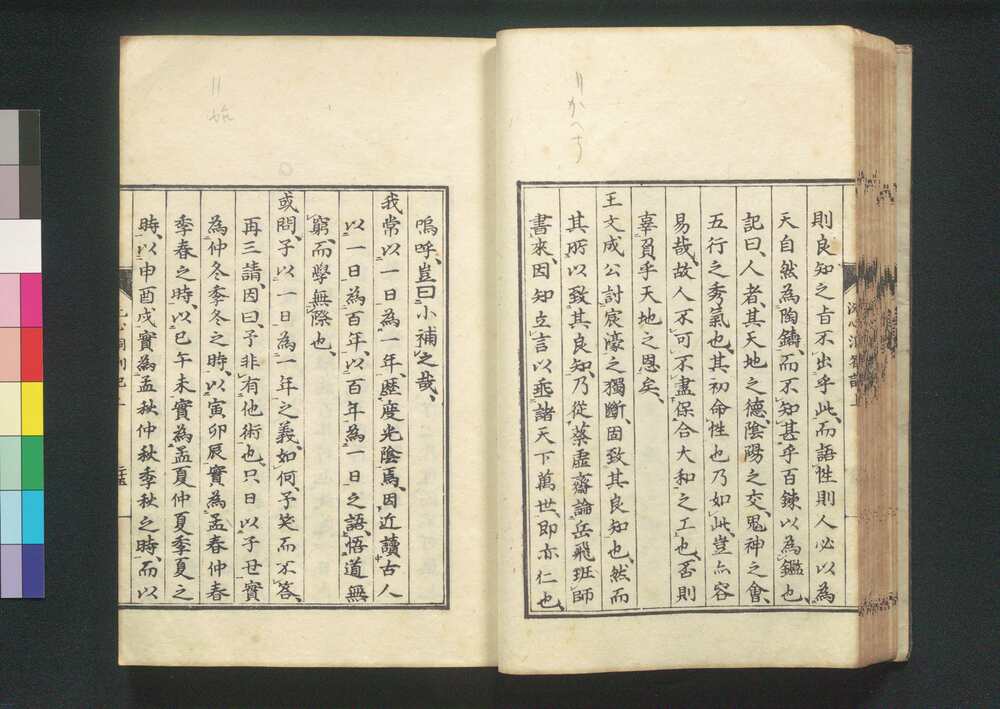 則良知之旨不出乎此、而語性則人必以為
天自然為陶鑄、而不知甚乎百鍊以為鑑也、
記曰、人者其天地之德、陰陽之交、鬼神之會、
五行之秀氣也、其初命性也乃如此、豈亦容
易哉、故人不可不盡保合大和之工也、否則
辜負乎天地之恩矣、
王文成公討宸濠之獨斷、固致其良知也、然而
其所以致其良知、乃從蔡虛齋論岳飛班師
書來、因知立言以垂諸天下萬世、即亦仁也、
嗚呼、豈曰小補之哉、
我常以一日為一年、歷度光陰焉、因近讀古人
以一日為百年、以百年為一日之語、悟道無
窮、而學無際也、
或問、予以一日為一年之義、如何、予笑而不答、
再三請、因曰、予非有他術也、只日以子丑實
為仲冬季冬之時、以寅卯辰實為孟春仲春
季春之時、以巳午未實為孟夏仲夏季夏之
時、以申酉戌實為孟秋仲秋季秋之時、而以